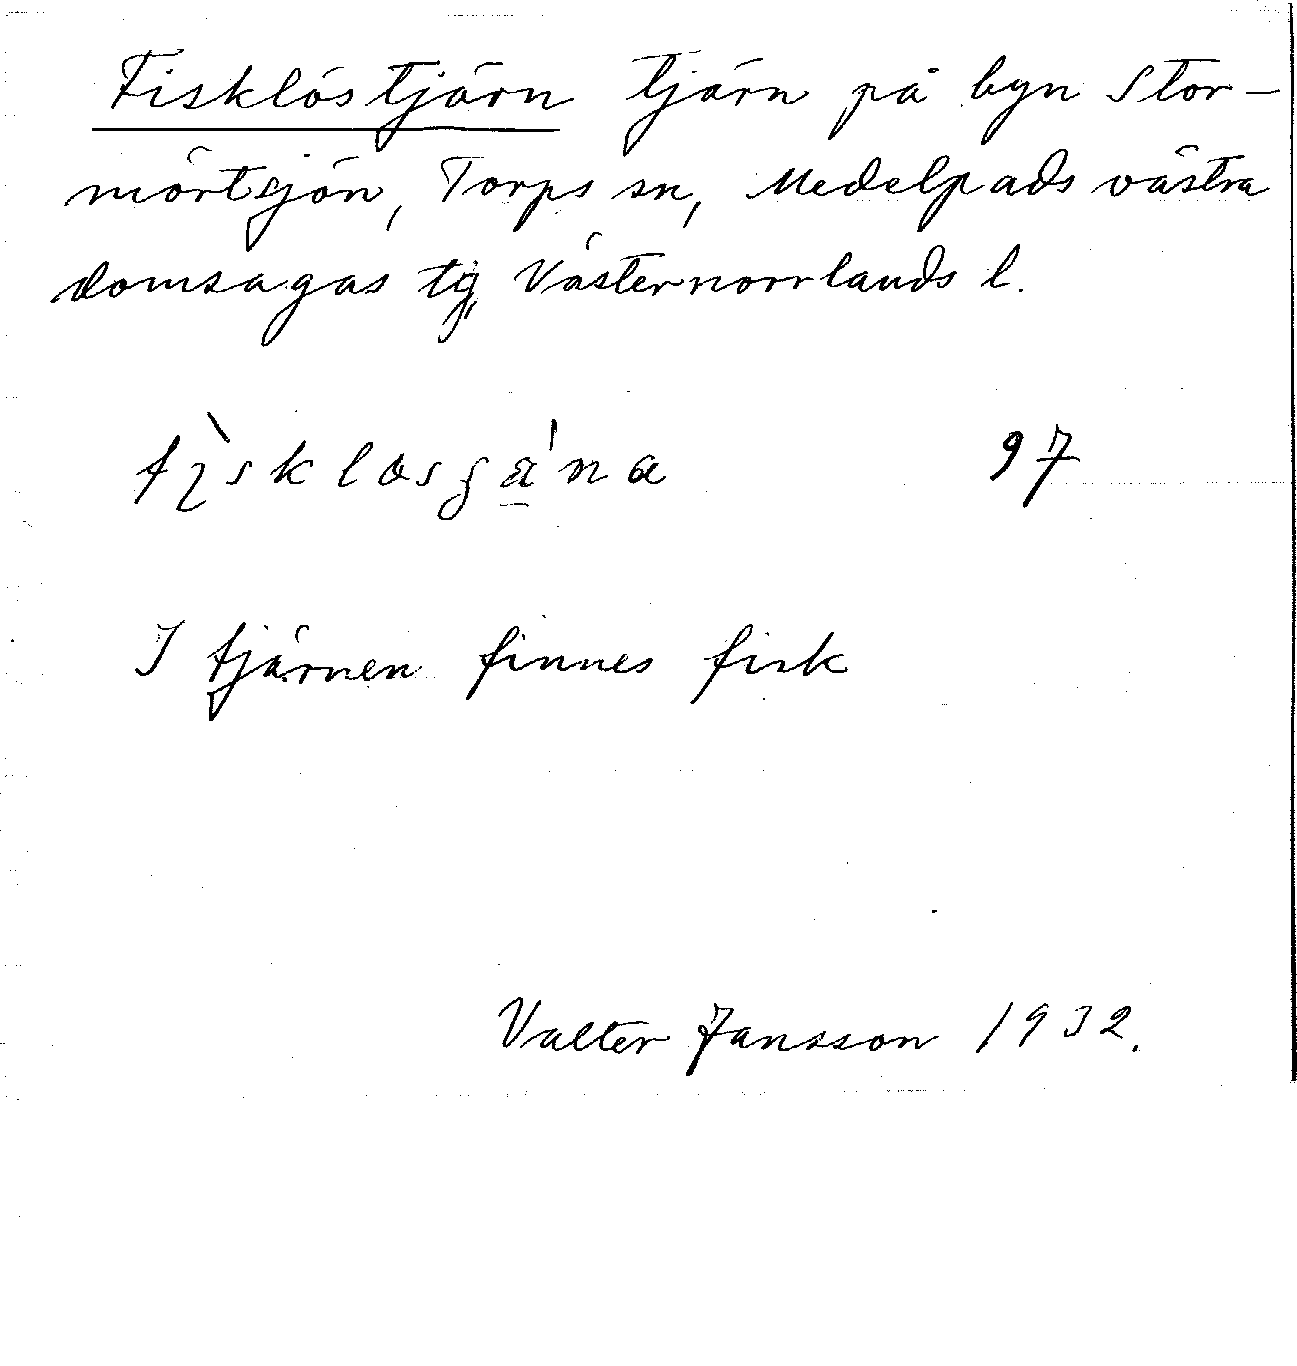 Fisklöstjärn tjärn på byn Stor-
mörtsjön, Torps sn, Medelpads västra
domsagas tg, Västernorrlands l.
97
I tjärnen finnes fisk
Valter Jansson 1932.